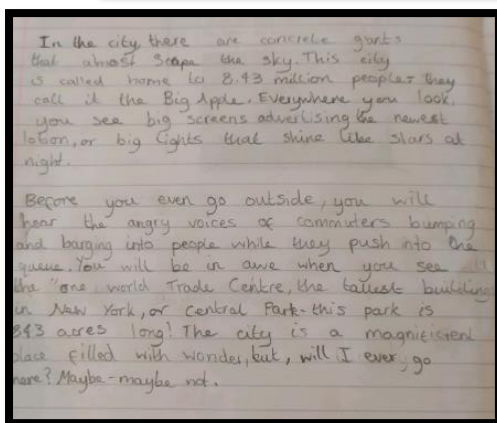 In the city there are concrete giants
that almost scrape the sky. This city
is called home to 8.43 million people - they
call it the Big Apple. Everywhere you look,
you see big screens advertising the newest
lotion, or big lights that shine like stars at
night.
Before you even go outside, you will
hear the angry voices of commuters bumping
and barging into people while they push into the
queue. You will be in awe when you see
the "one world Trade Centre, the tallest building
in New York, or Central Park - this park is
843 acres long! The city is a magnificent
place filled with wonder, but, will I ever, go
here? Maybe - maybe not.